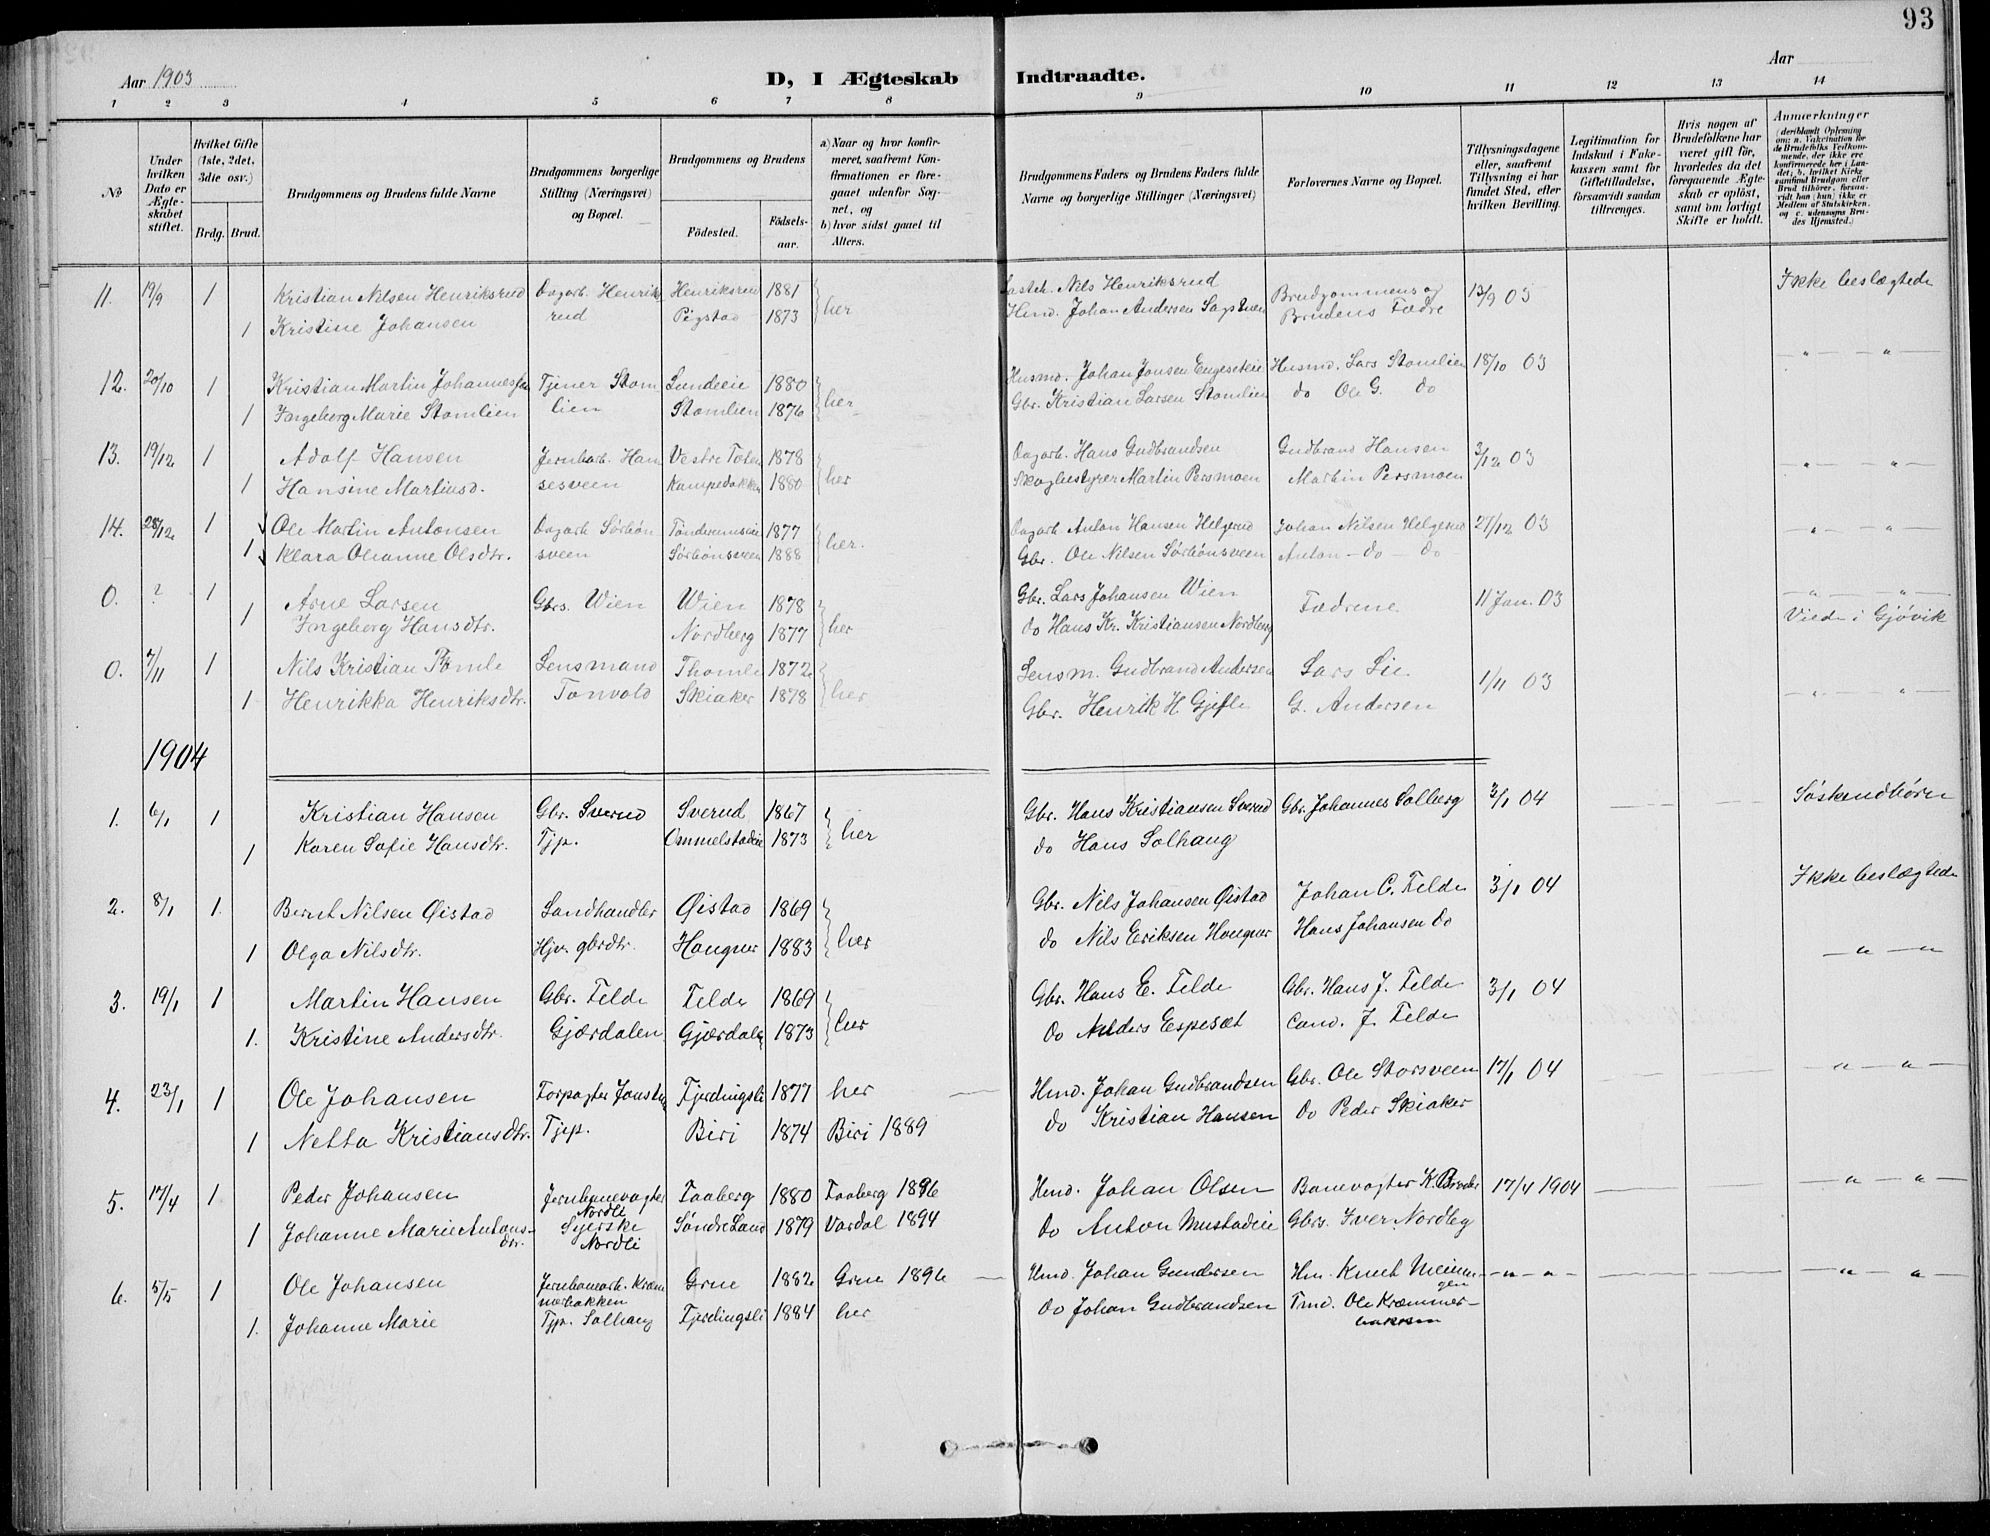 93
Aar 1903
D, I Ægteskab Indtraadte.
Aar
1 2 3 4 5 6 7 8 9 10 11 12 13 14
No
Under hvilken Dato er Ægteskabet stiftet.
Hvilket Gifte (1ste, 2det, 3die osv.)
Brdg. Brud.
Brudgommens og Brudens fulde Navne
Brudgommens borgerlige Stilling (Næringsvei) og Bopæl.
Brudgommens og Brudens
Födested. Födsels-aar.
a) Naar og hvor konfirmeret, saafremt Konfirmationen er foregaaet udenfor Sognet, og
b) hvor sidst gaaet til Alters.
Brudgommens Faders og Brudens Faders fulde Navne og borgerlige Stillinger (Næringsvei)
Forlovernes Navne og Bopæl.
Tillysningsdagene eller, saafremt Tillysning ei har fundet Sted, efter hvilken Bevilling.
Legitimation for Indskud i Enkekassen samt for Giftetilladelse, forsaavidt saadan tiltrænges.
Hvis nogen af Brudefolkene har været gift för, hvorledes da det foregaaende Ægteskab er oplöst, samt om lovligt Skifte er holdt.
Anmærkninger
(deriblandt Oplysning om: a. Vakcination for de Brudefolks Vedkommende, der ikke ere konfirmerede her i Landet; b. hvilket Kirkesamfund Brudgom eller Brud tilhörer, forsaavidt han (hun) ikke er Medlem af Statskirken, og c. udensogns Brudes Hjemsted.)
11. 19/9 1 Kristian Nilsen Henriksrud Dagarb. Henriks Henriksrud 1881 her Nils Henriksrud Brudgommens og 13/9 03 Ikke beslægtede
1 Kristine Johansen rud Pigstad 1873 Hmd. Johan Andersen Brudens Fædre
12. 20/10 1 Kristian Martin Johannessen Tjener Stom Sundeie 1880 her Husmd. Johan Jonsen Engeseteie Husmd. Lars Stomlien 18/10 03 " "
1 Ingeborg Marie Stomlien lien Stomlien 1876 Gbr. Kristian Larsen Stomlien do Ole G. do
13. 19/12 1 Adolf Hansen Jernbarb. Han Vestre Toten 1878 her Dagarb. Hans Gudbrandsen Gudbrand Hansen 3/12 03 " "
1 Hansine Martinsd. sesveen Kampebakken 1880 Skogbestyrer Martin Persmoen Martin Persmoen
14. 28/12 1 Ole Martin Antonsen Dagarb Sørbøn 1877 her. Dagarb Anton Hansen Helgerud Johan Nilsen Helgerud 27/12 03 " "
1 Klara Olianne Olsdtr. sveen Sørbønsveen 1888 Gbr. Ole Nilsen Sørbønsveen Anton - do - do -
0. ? 1 Arne Larsen Gbrs. Wien Wien 1878 her Gbr. Lars Johansen Wien Fædrene 11 Jan. 03 " "
1 Ingeborg Hansdtr. Nordberg 1877 do Hans Kr. Kristiansen Nordberg Viede i Gjøvik
0. 7/11 1 Nils Kristian Tømle Lensmand Thomle 1872 her Lensm. Gudbrand Andersen Lars Lie 1/11 03
1 Henrikka Henriksdtr. Tonvold Skiaker 1878 Gbr. Henrik H. Gjefle G. Andersen " "
1904
1. 6/1 1 Kristian Hansen Gbr. Sverud Sverud 1867 her Gbr. Hans Kristiansen Sverud Gbr. Johannes Solberg 3/1 04 Søskendbørn
1 Karen Sofie Hansdtr. Tjp. Ommelstadeie 1873 do Hans Solhaug
2. 8/1 1. Bernt Nilsen Øistad Landhandler Øistad 1869 her Gbr. Nils Johansen Øistad Johan C. Felde 3/1 04 Ikke beslægtede
1 Olga Nilsdtr. Hjv. gbrdtr. Haugner 1883 do Nils Eriksen Haugner Hans Johansen do
3. 19/1 1 Martin Hansen Gbr. Felde Felde 1869 her Gbr. Hans E. Felde Gbr. Hans J. Felde 3/1 04 " "
1. Kristine Andersdtr. Gjærdalen Gjærdalen 1873 do Anders Espeset Cand. J. Felde
4. 23/1 1 Ole Johansen Forpagter Fjerdingsli 1877 her Hmd. Johan Gudbrandsen Gbr. Ole Storsveen 17/1 04 " "
1 Netta Kristiansdtr. Tjp. Biri 1874 Biri 1889 do Kristian Hansen do Peder Skiaker
5. 17/4 1 Peder Johansen Jernbanevogter Nordli Faaberg 1880 Faaberg 1896 Hmd. Johan Olsen Banevogter K. 17/4 1904 " "
1 Johanne Marie Antonsdtr. Syerske Nordli Søndre Land 1879 Vardal 1894 do Anton Mustadeie Gbrs. Iver Nordby
6. 5/5 1 Ole Johansen Jernbanearb. Kræmmerbakken Grue 1882 Grue 1896 Hmd. Johan Gundersen Hm. Knut - " - " - " "
1. Johanne Marie Tjp. Solhaug Fjerdingsli 1884 her do Johan Gudbrandsen Tmd. Ole Kræmmerbakken